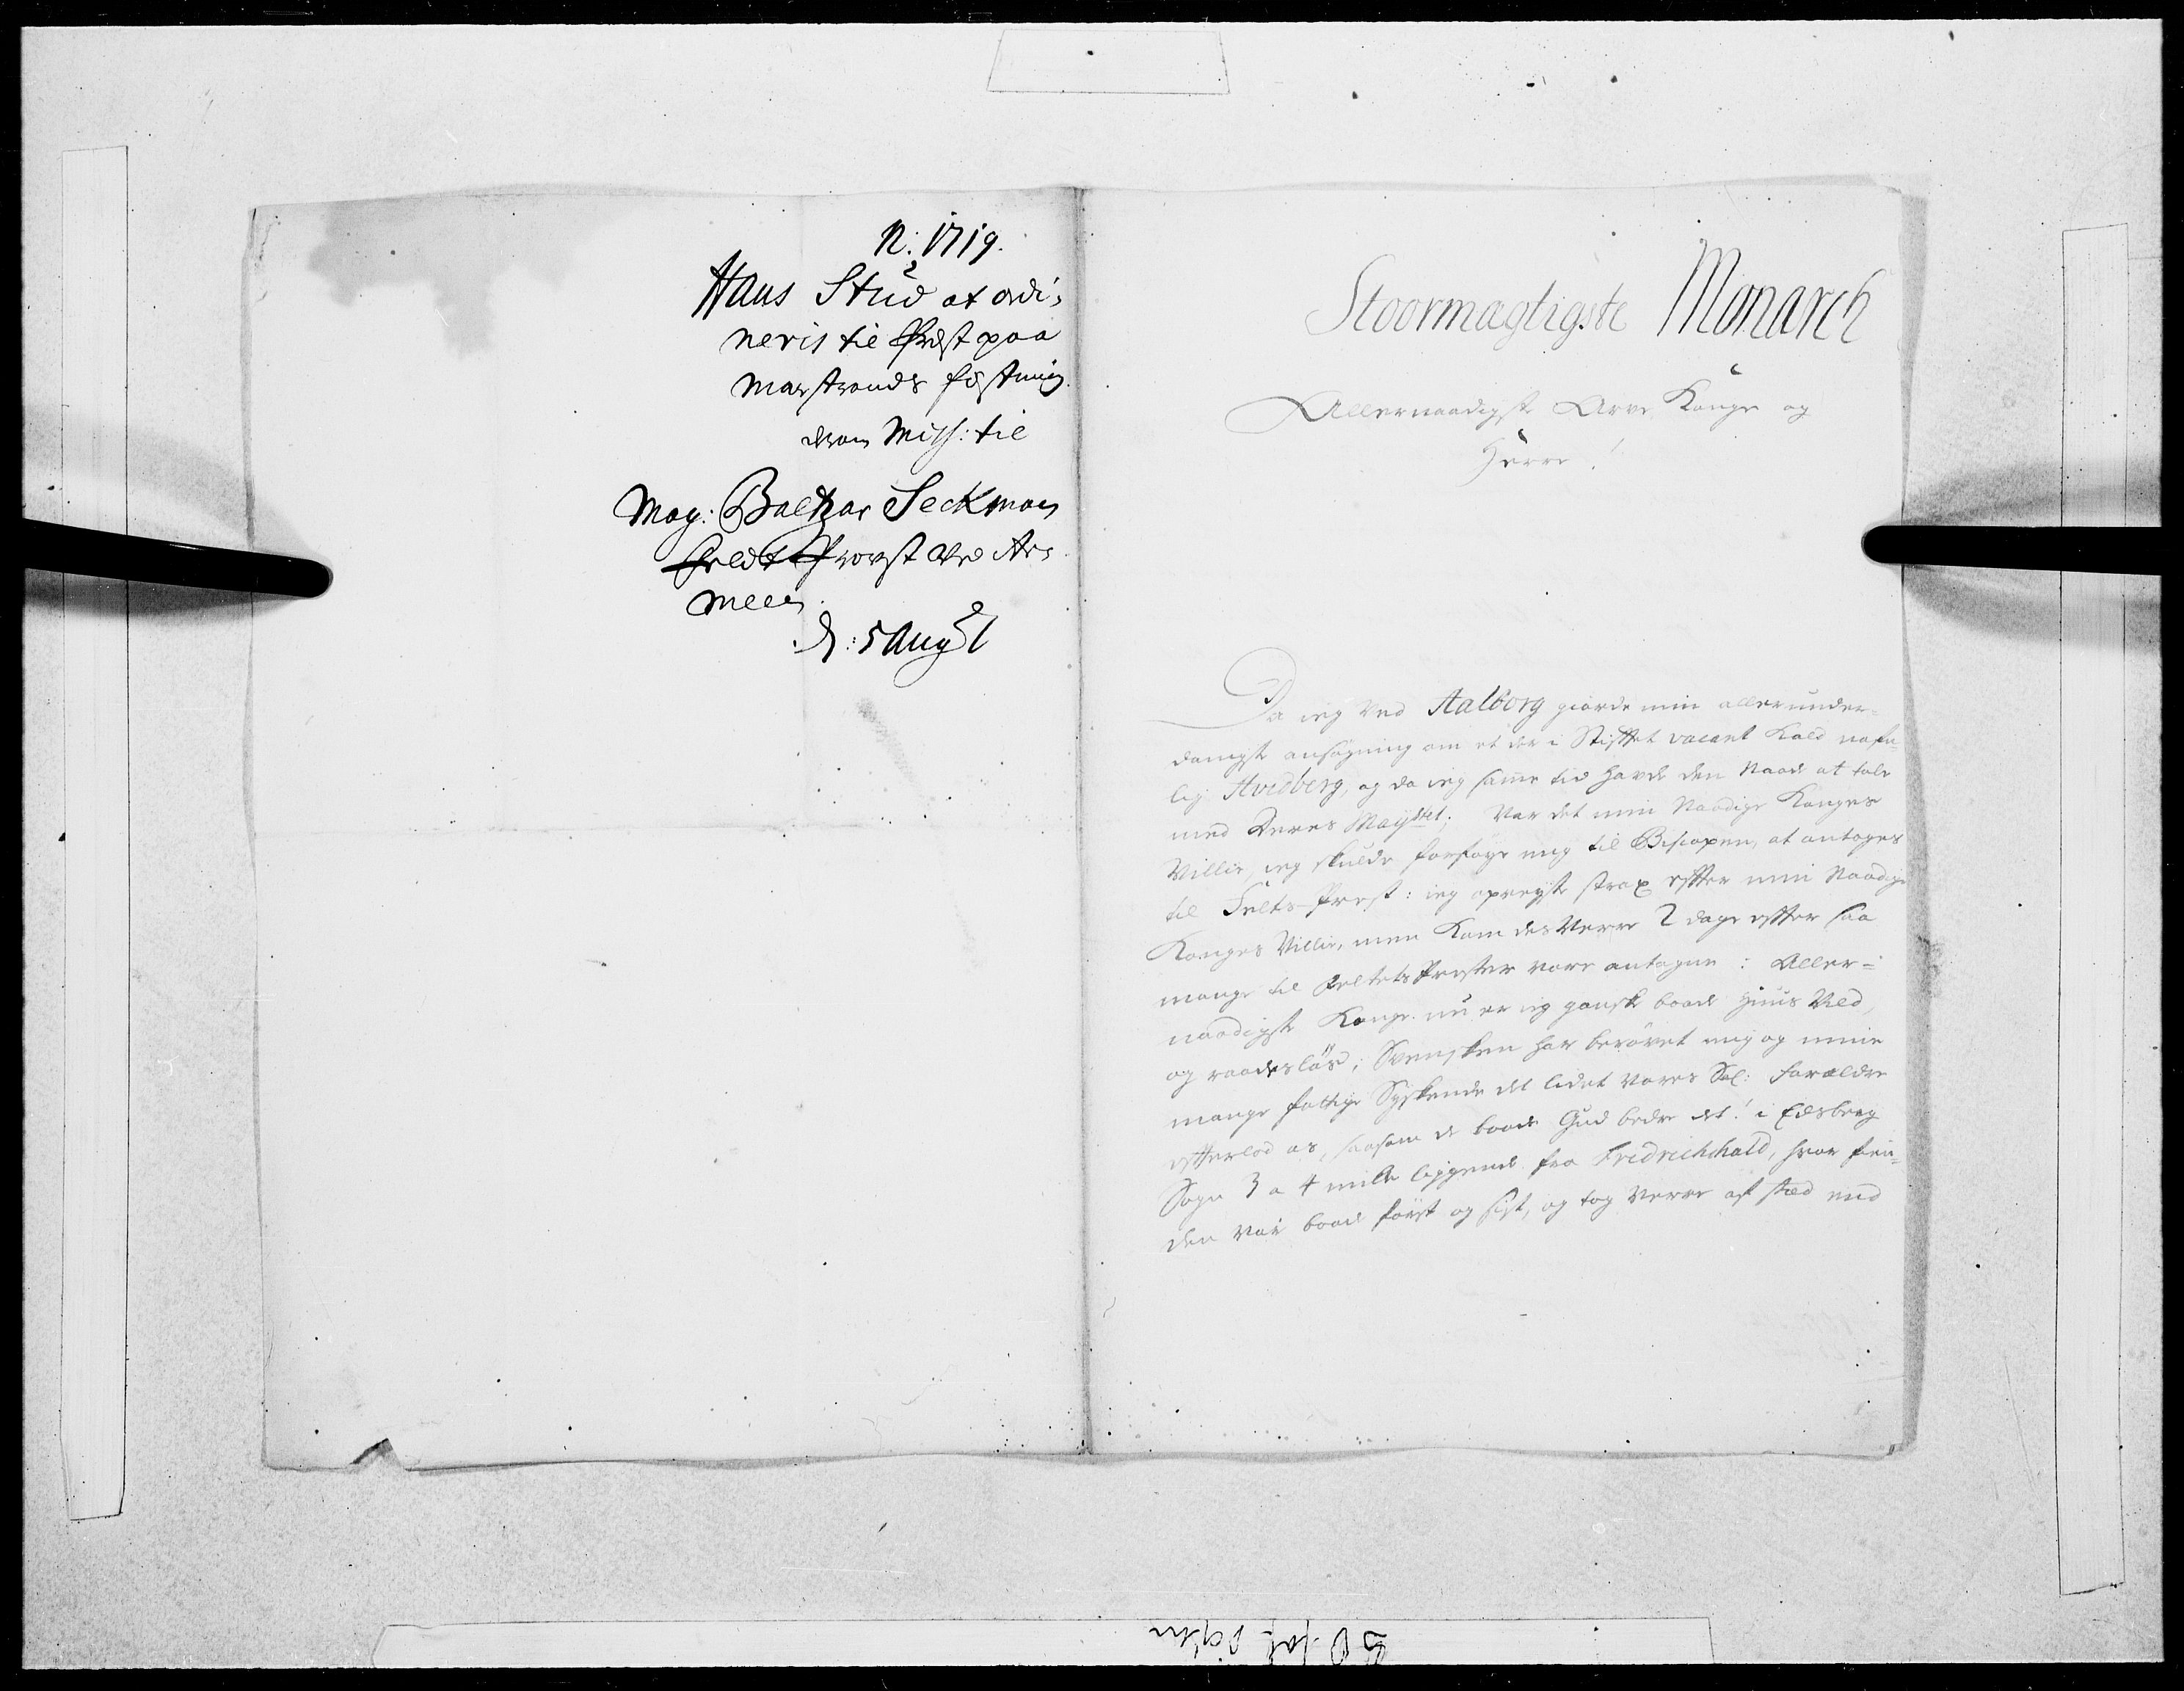 N: 1719.
Hans Stud at ordi-
neris til Præst paa
Marstrands festning.
derom Miss: til
Mag: Baltzar Seckman
Feldt Provst ved Ar-
meen.
d: 5 Augst
Stoormagtigste Monarch
Allernaadigste Arve Konge og
Herre!
Da ieg ved Aalborg giorde min allerunder-
danigste ansøgning om et der i Stiftet vacant kald nafn-
lig Hvidberg, og da ieg samme tid havde den Naade at tale
med Deres Mayestet; Var det min Naadige Konges
Villie, ieg skulde forføye mig til Biscopen, at antages
til Felts-Prest: ieg opreyste strax efter min Naadige
Konges Villie, men kom des Verre 2 dage efter saa
mange til Feltets Prester vare antagne: Aller-
naadigste Konge nu er ieg gansk baade Huus Vild,
og raadesløs; Svensken har berøvet mig og mine
mange fattige Syskende det lidet vores Sal: Forældre
efterlod os, saasom de boede Gud bedre det! i Edsberg
Sogn 3 a 4 mile liggende fra Fredrichshald, hvor fien-
den var baade først og sist, og tog verre af sted end